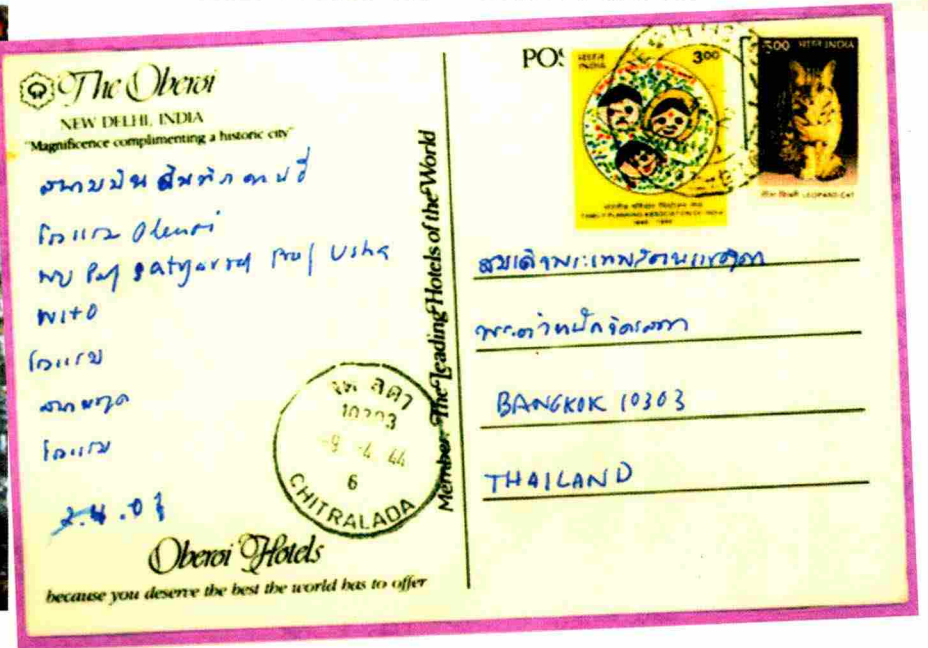 The Oberoi
NEW DELHI, INDIA
"Magnificence complimenting a historic city"
สนามบินอินทิราคานธี
โรงแรม Oberoi
พบ Prof Satyavrat Prof Usha
โรงแรม
สนามบุต
โรงแรม
Oberoi Hotels
because you deserve the best the world has to offer
Member: The Leading Hotels of the World
10303
-9 -4 44
6
CHITRALADA
POS
भारत
INDIA
300
FAMILY PLANNING ASSOCIATION OF INDIA
500 भारत INDIA
LEOPARD CAT
สมเด็จพระเทพรัตนราชสุดา
พระตำหนักจิตรลดา
BANGKOK 10303
THAILAND